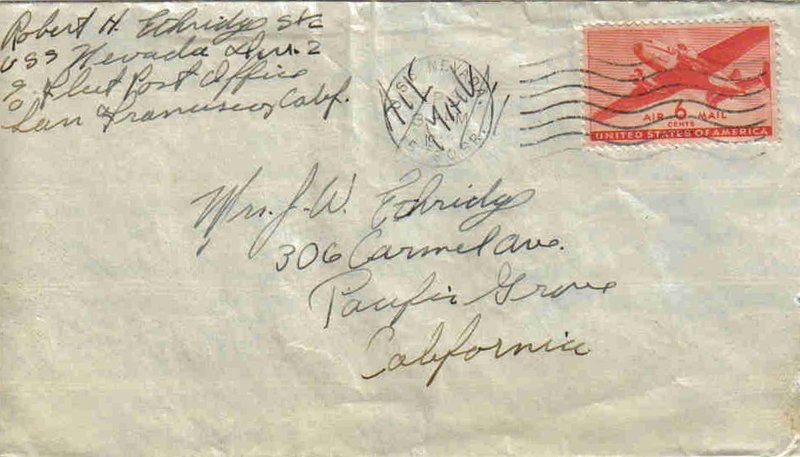 Robert H. Ethridge S1c
USS Nevada Div. 2
℅ Fleet Post Office
San Francisco, Calif.
U.S.S. NEVADA
AIR 6 MAIL
CENTS
UNITED STATES OF AMERICA
Mrs. J. W. Ethridge
306 Carmel Ave.
Pacific Grove
California